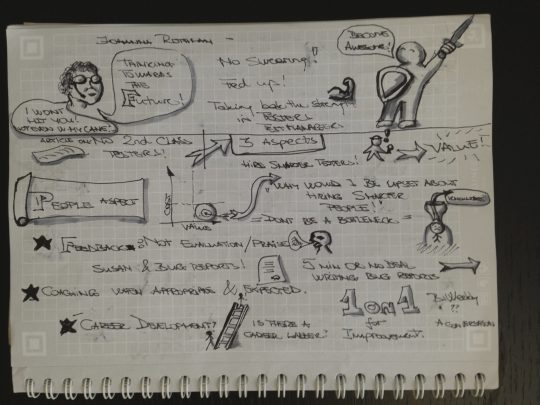 JOHANNA ROTHMAN -
THINKING
TOWARDS
THE
FUTURE!
I WONT
HIT YOU!
NOT EVEN W MY CANE!
No SWEARING!
FED UP!
Taking back the
in TESTERS
TEST MANAGERS
BECOME
AWESOME!
ARTICLE ON NO 2nd CLASS
TESTERS!
3 ASPECTS
VALUE!
HIRE SMARTER TESTERS!
PEOPLE ASPECT
VALUE
"WHY WOULD I BE UPSET ABOUT
HIRING SMARTER
PEOPLE!"
= DONT BE A BOTTLENECK =
FEEDBACK NOT EVALUATION/PRAISE
SUSAN & BUG REPORTS!
5 MIN OR NO DEAL
WRITING BUG REPORTS
COACHING WHEN APPROPRIATE & EXPECTED.
1 ON 1
for
IMPROVEMENT.
BiWeekly
??
A CONVERSATION
CAREER DEVELOPMENT?
IS THERE A
CAREER LADDER?